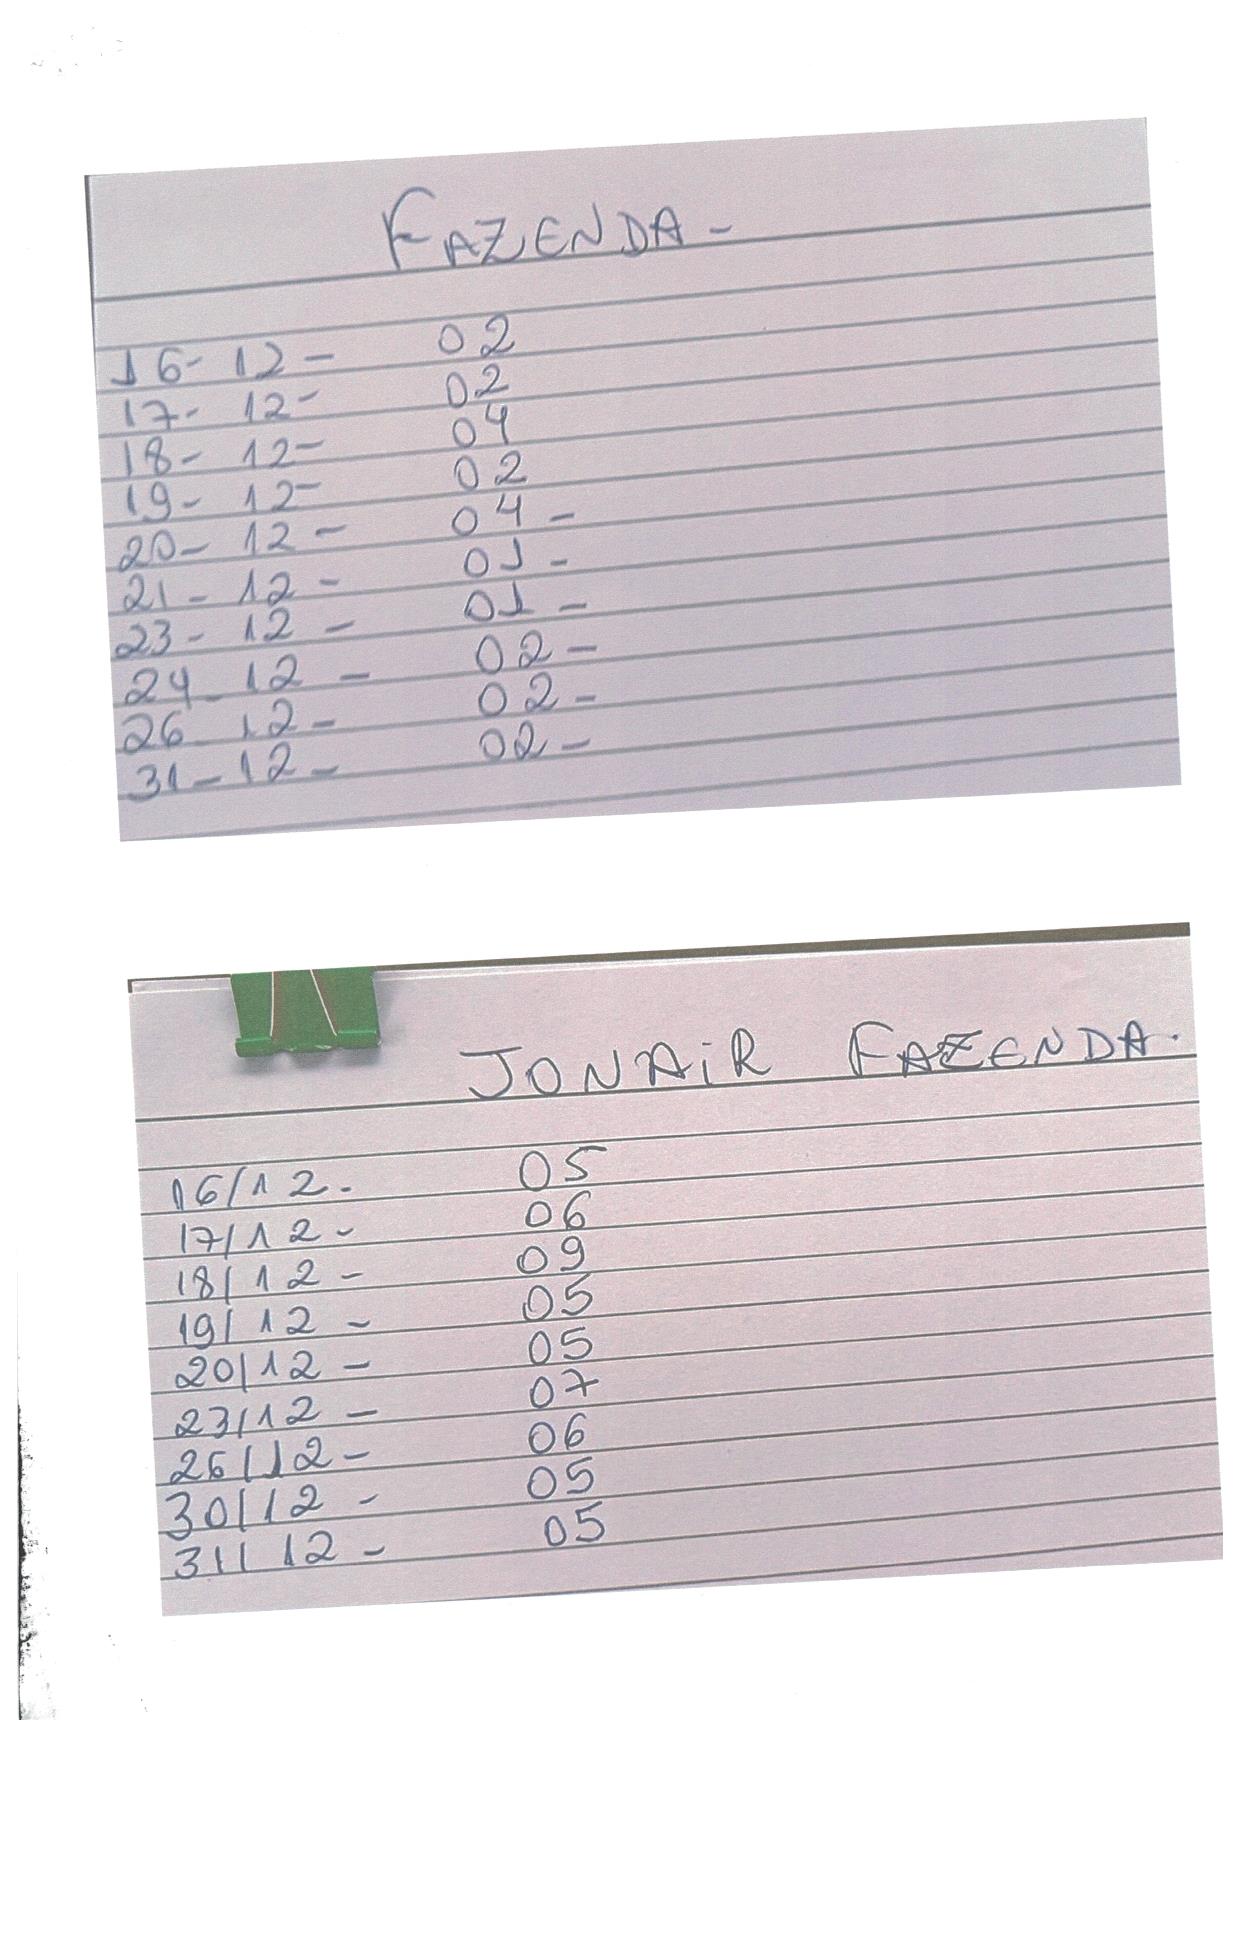 FAZENDA -
16- 12 - 02
17- 12- 02
18- 12- 04
19- 12- 02
20- 12 - 04 -
21 - 12 - 01 -
23- 12 - 01 -
24- 12 - 02 -
26 12 - 02 -
31 - 12 - 02 -
JONAiR FAZENDA.
16/12. 05
17/12 - 06
18/12 - 09
19/12 - 05
20/12 - 05
23/12 - 07
26/12 - 06
30/12 - 05
31/12 - 05